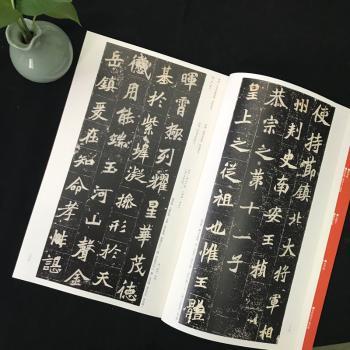 使持節鎮北大將軍相
州刺史南安王楨
恭宗之第十一子
皇上之從祖也惟王體
暉霄極列耀星華茂德
基於紫墀凝操形於天
儀用能端玉河山聲金
岳鎮爰在知命孝性諶